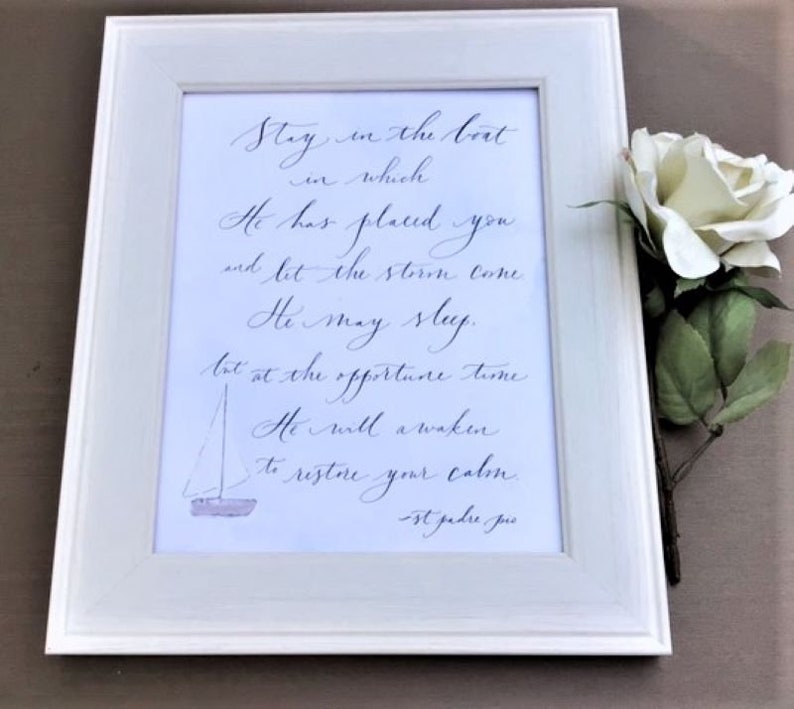 Stay in the boat
in which
He has placed you
and let the storm come.
He may sleep,
but at the opportune time
He will awaken
to restore your calm.
-st padre pio